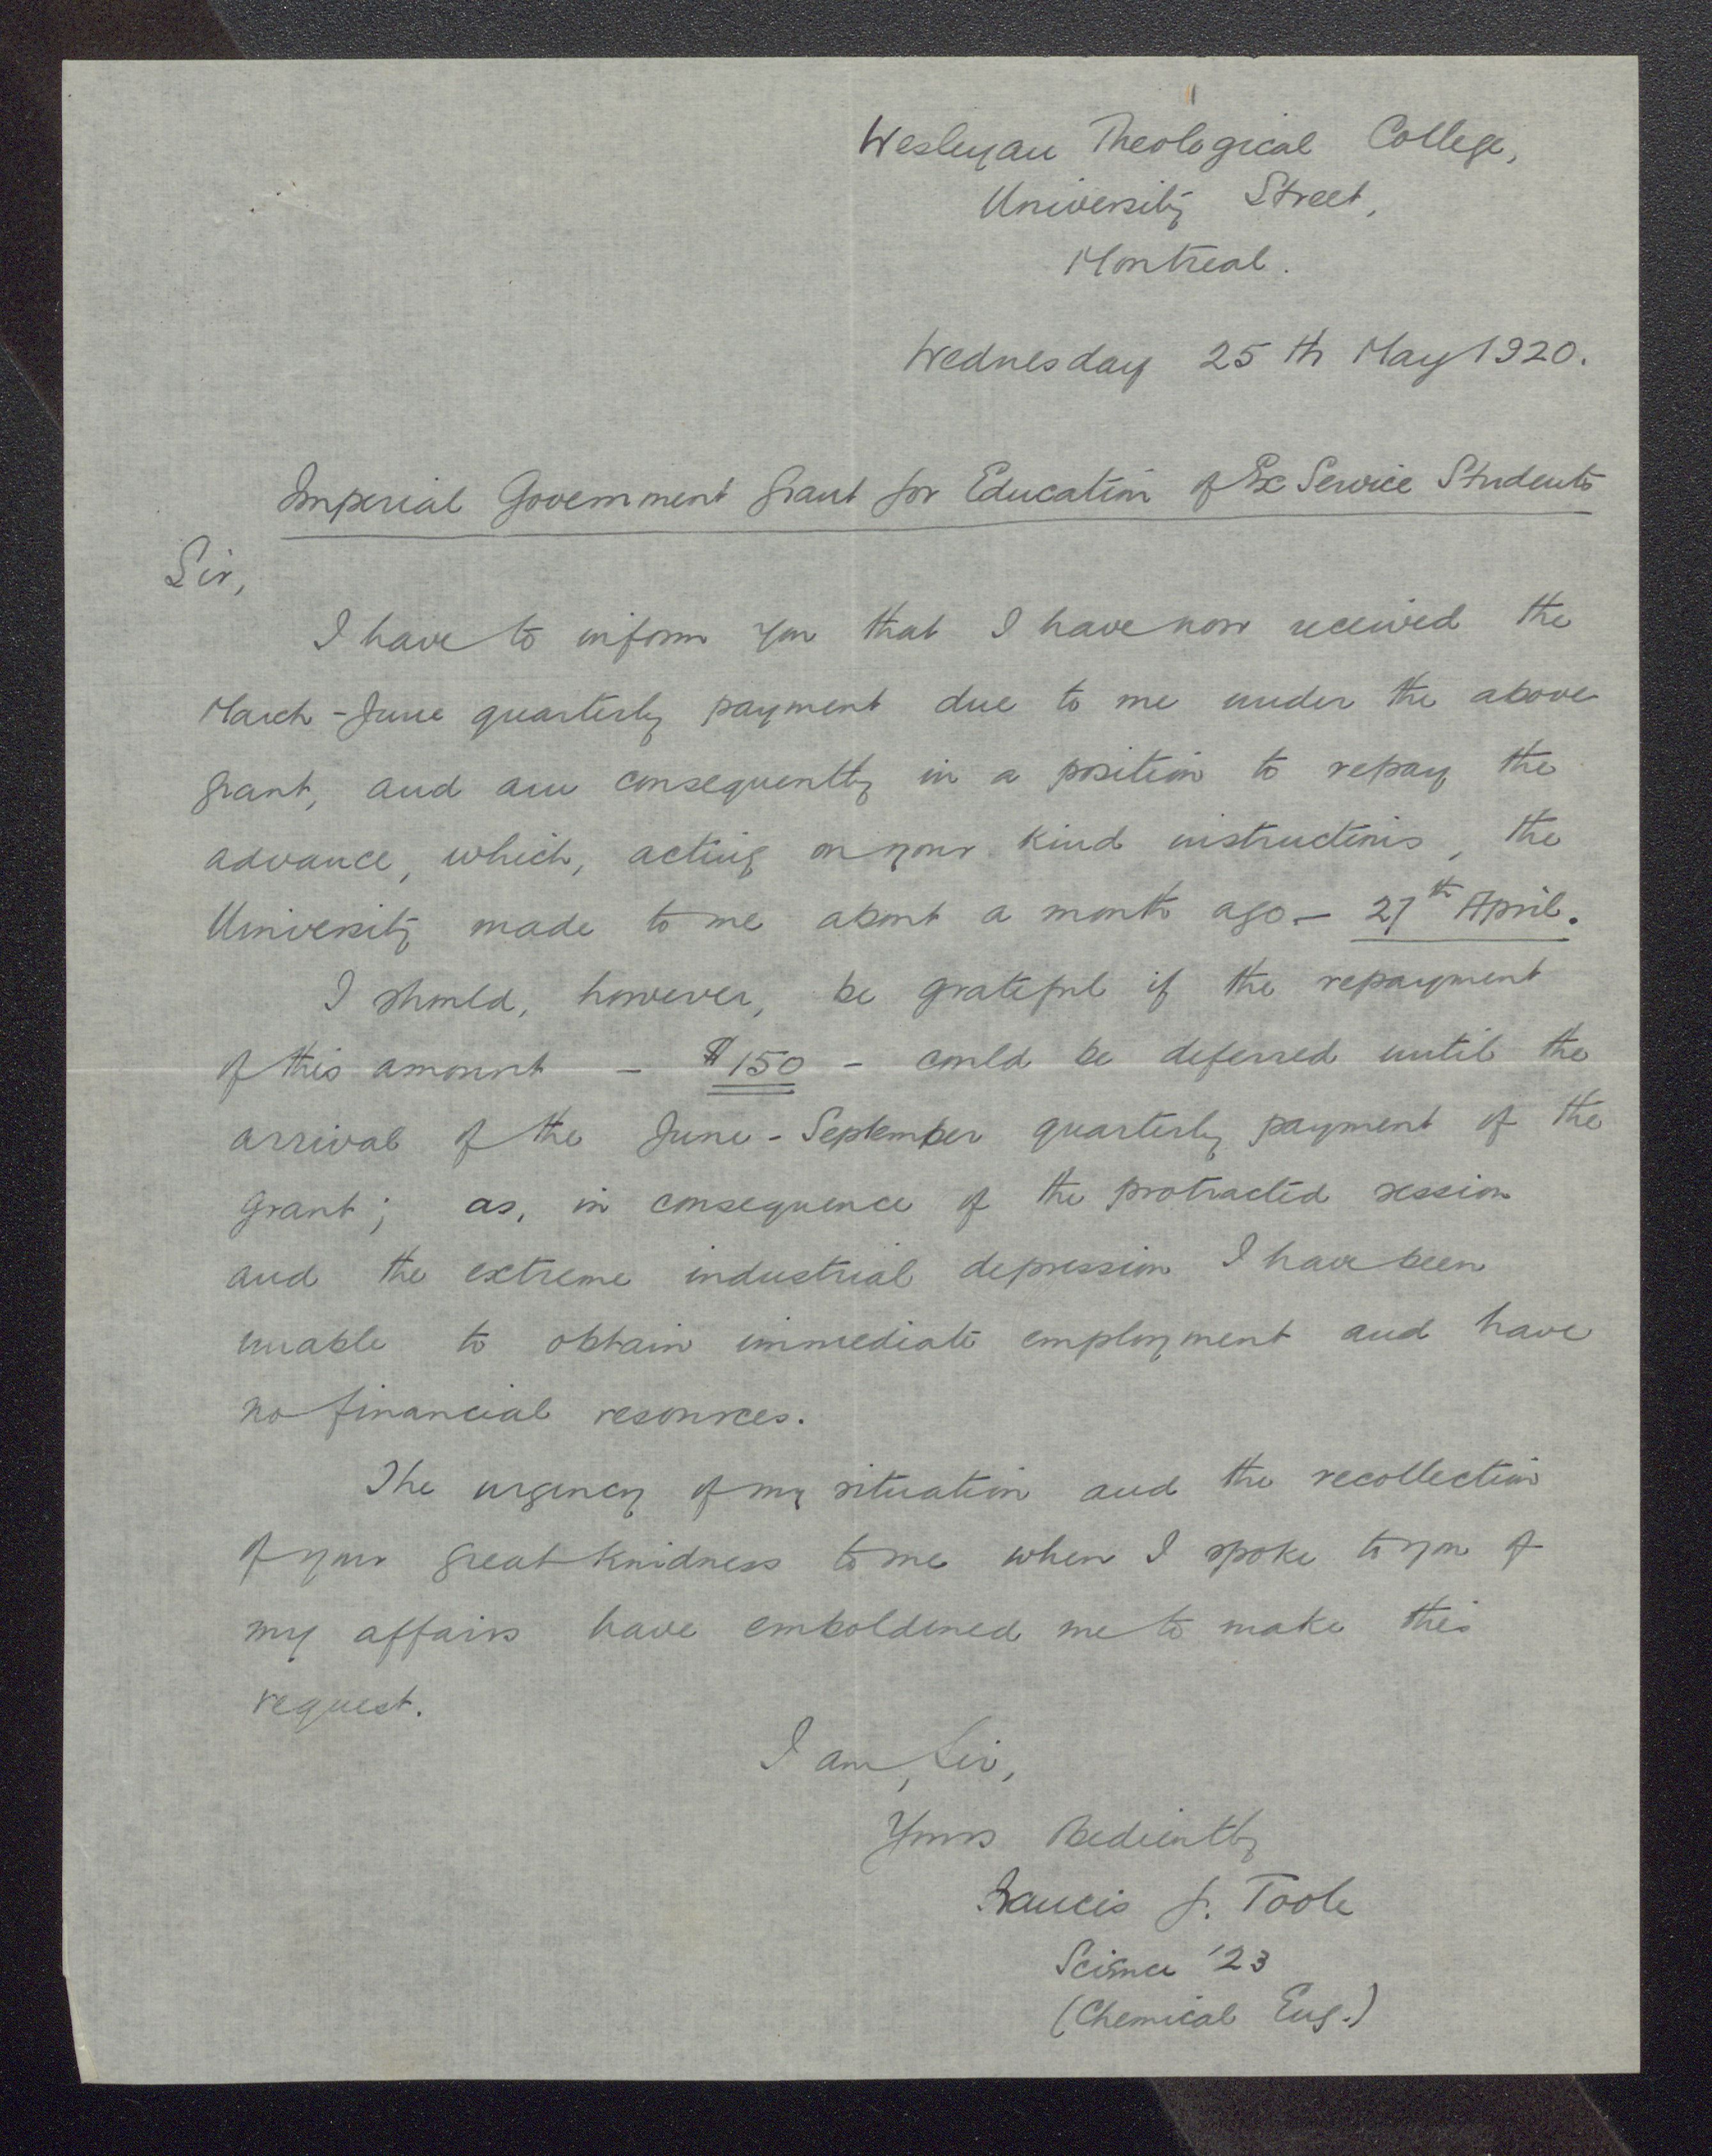 Wesleyan Theological College,
University Street,
Montreal.
Wednesday 25th May 1920.
Imperial Government Grant for Education of Ex Service Students
Sir,
I have to inform you that I have now received the
March-June quarterly payment due to me under the above
grant, and am consequently in a position to repay the
advance, which, acting on your kind instructions, the
University made to me about a month ago – 27th April.
I should, however, be grateful if the repayment
of this amount – $150 – could be deferred until the
arrival of the June-September quarterly payment of the
grant; as, in consequence of the protracted session
and the extreme industrial depression I have been
unable to obtain immediate employment and have
no financial resources.
The urgency of my situation and the recollection
of your great kindness to me when I spoke to you of
my affairs have emboldened me to make this
request.
I am, Sir,
Yours obediently
Francis J. Toole
Science '23
(Chemical Eng.)